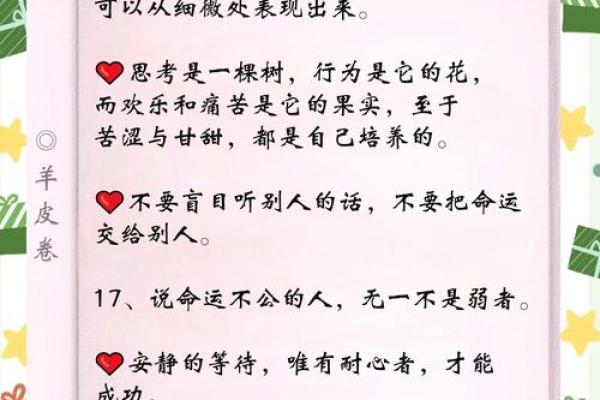 可以从细微处表现出来。
思考是一棵树，行为是它的花，
而欢乐和痛苦是它的果实，至于
苦涩与甘甜，都是自己培养的。
不要盲目听别人的话，不要把命运
交给别人。
17、说命运不公的人，无一不是弱者。
安静的等待，唯有耐心者，才能
成功。
◎羊皮卷